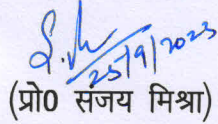 25/9/2023
(प्रो0 संजय मिश्रा)